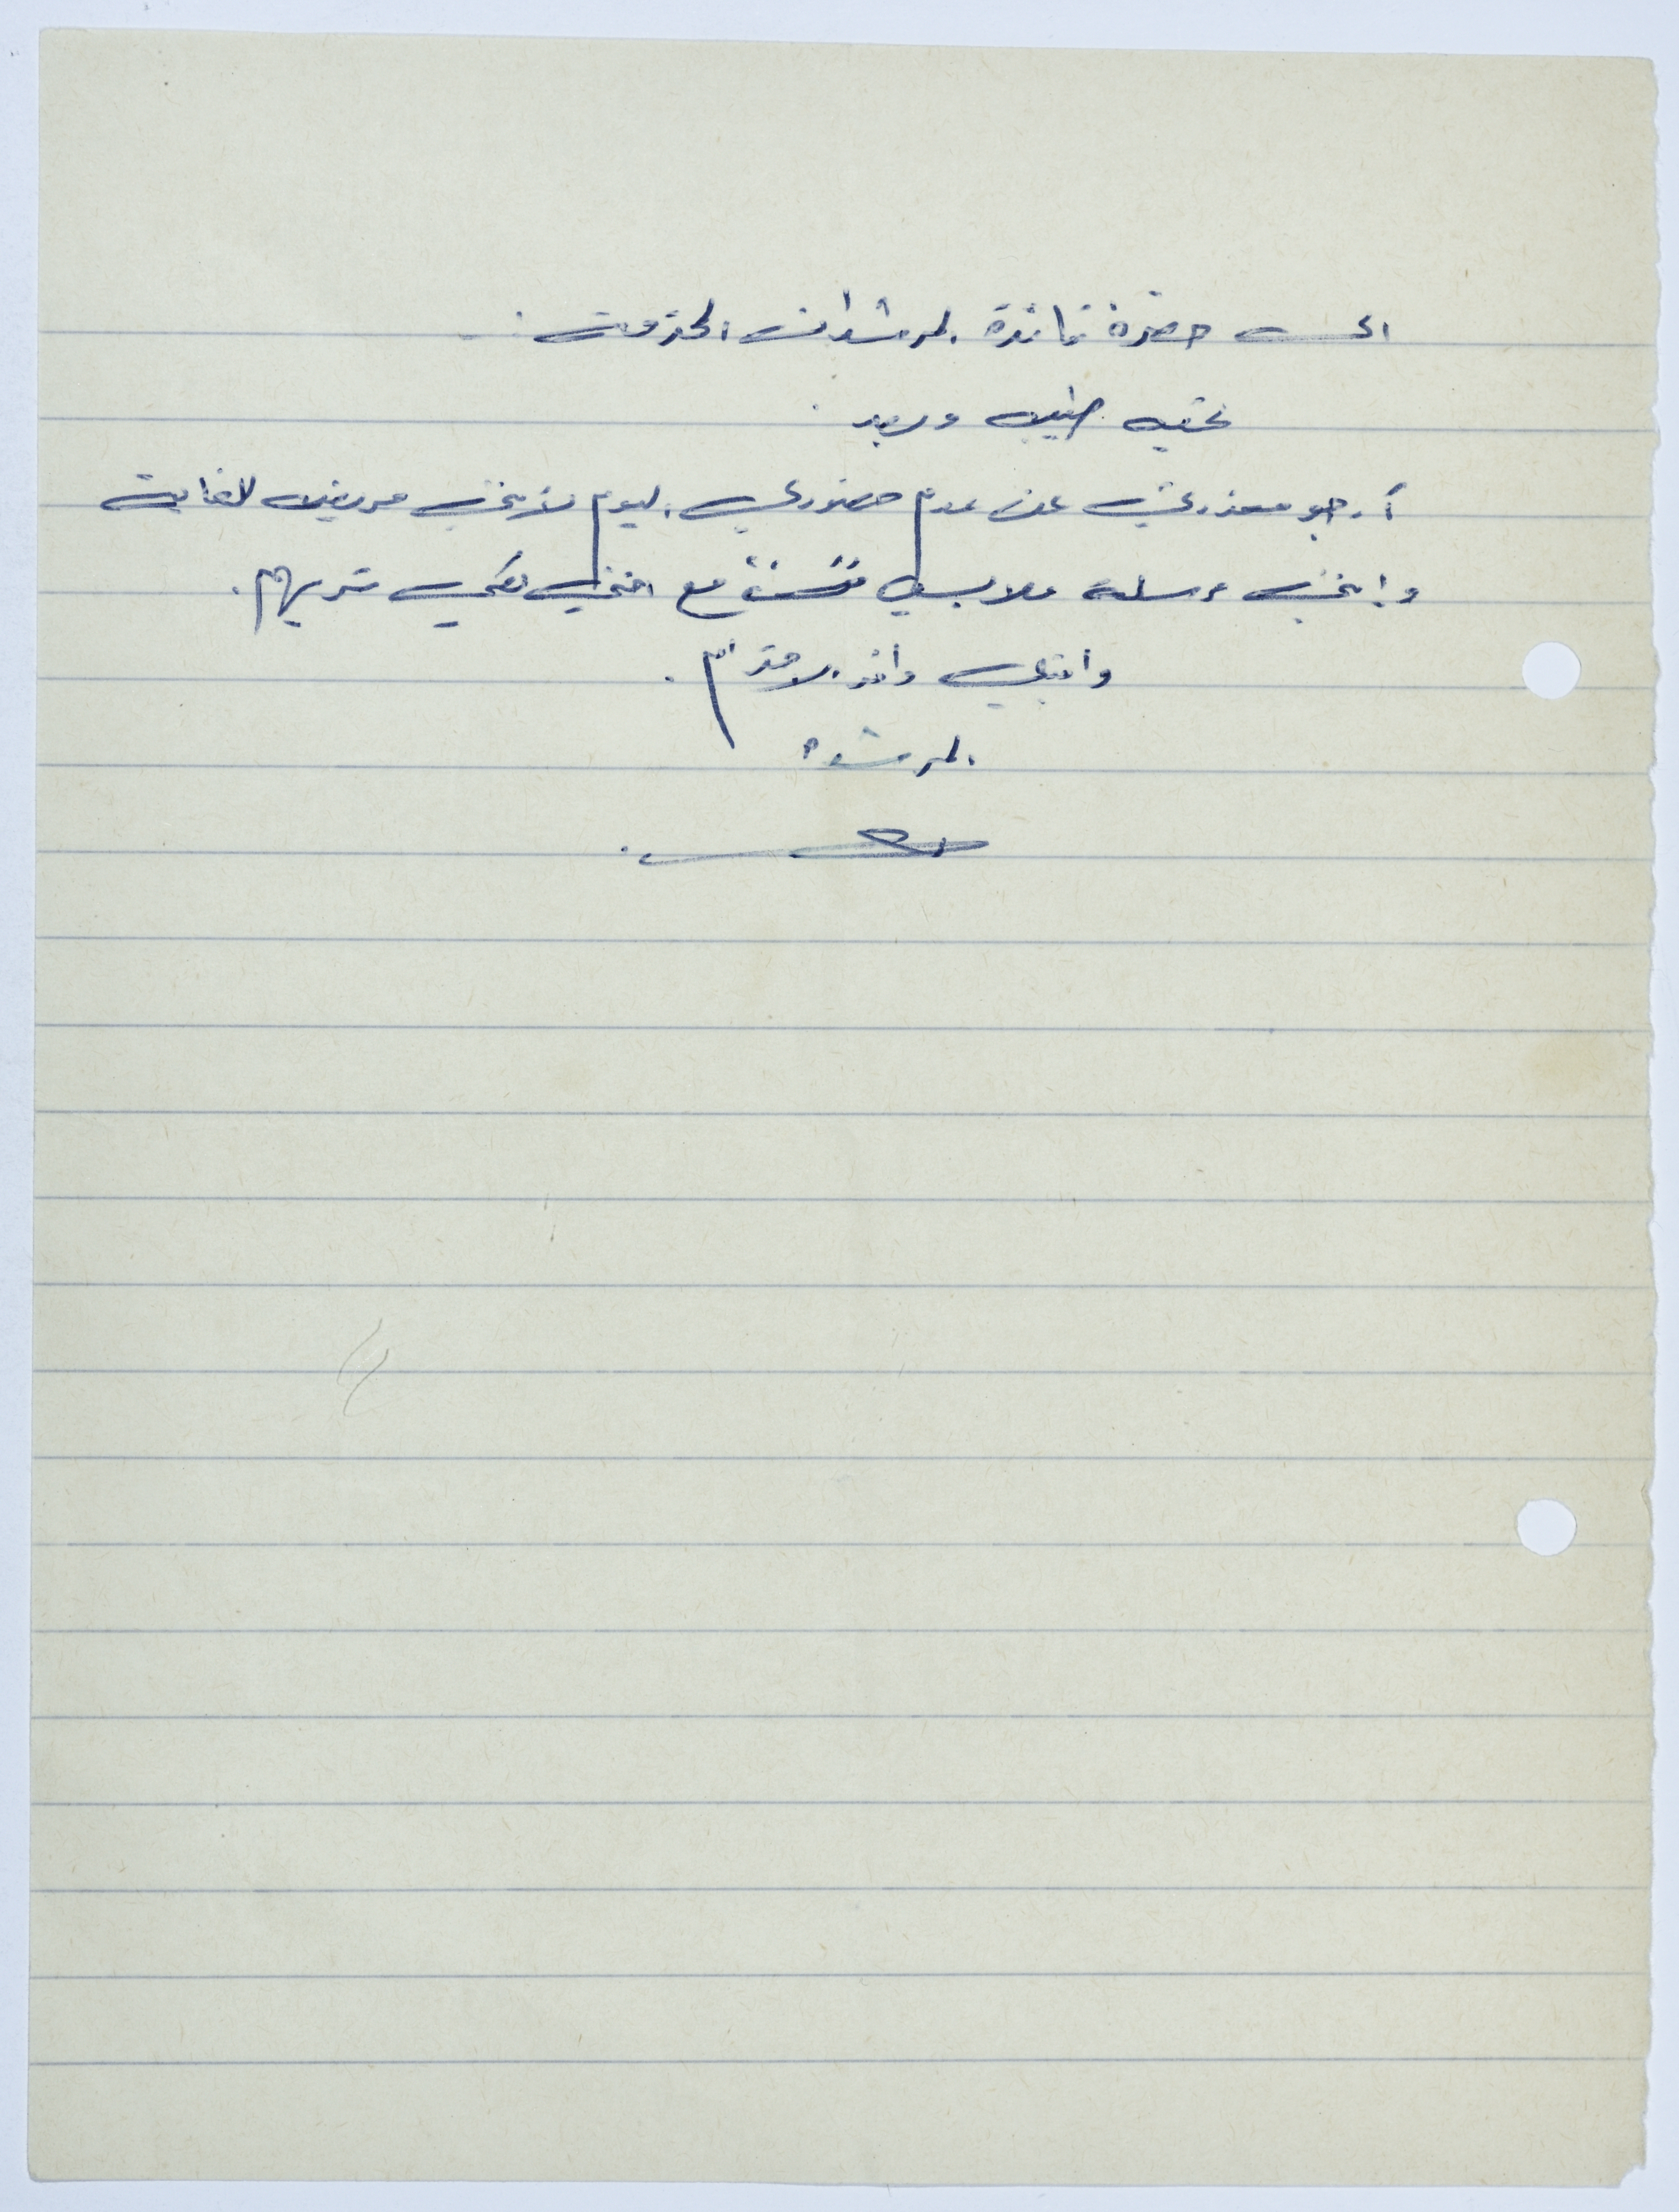 الى حضرة قائدة المرشدات المحترمة
تحيه طيبه وبعد
أرجو معذرتي عن عدم حضوري اليوم لأنني مريضه للغاية
وإنني مرسلة ملابسي مع اختي لكي تريهم.
واقبلي وافر الاحترام.
المرشدة